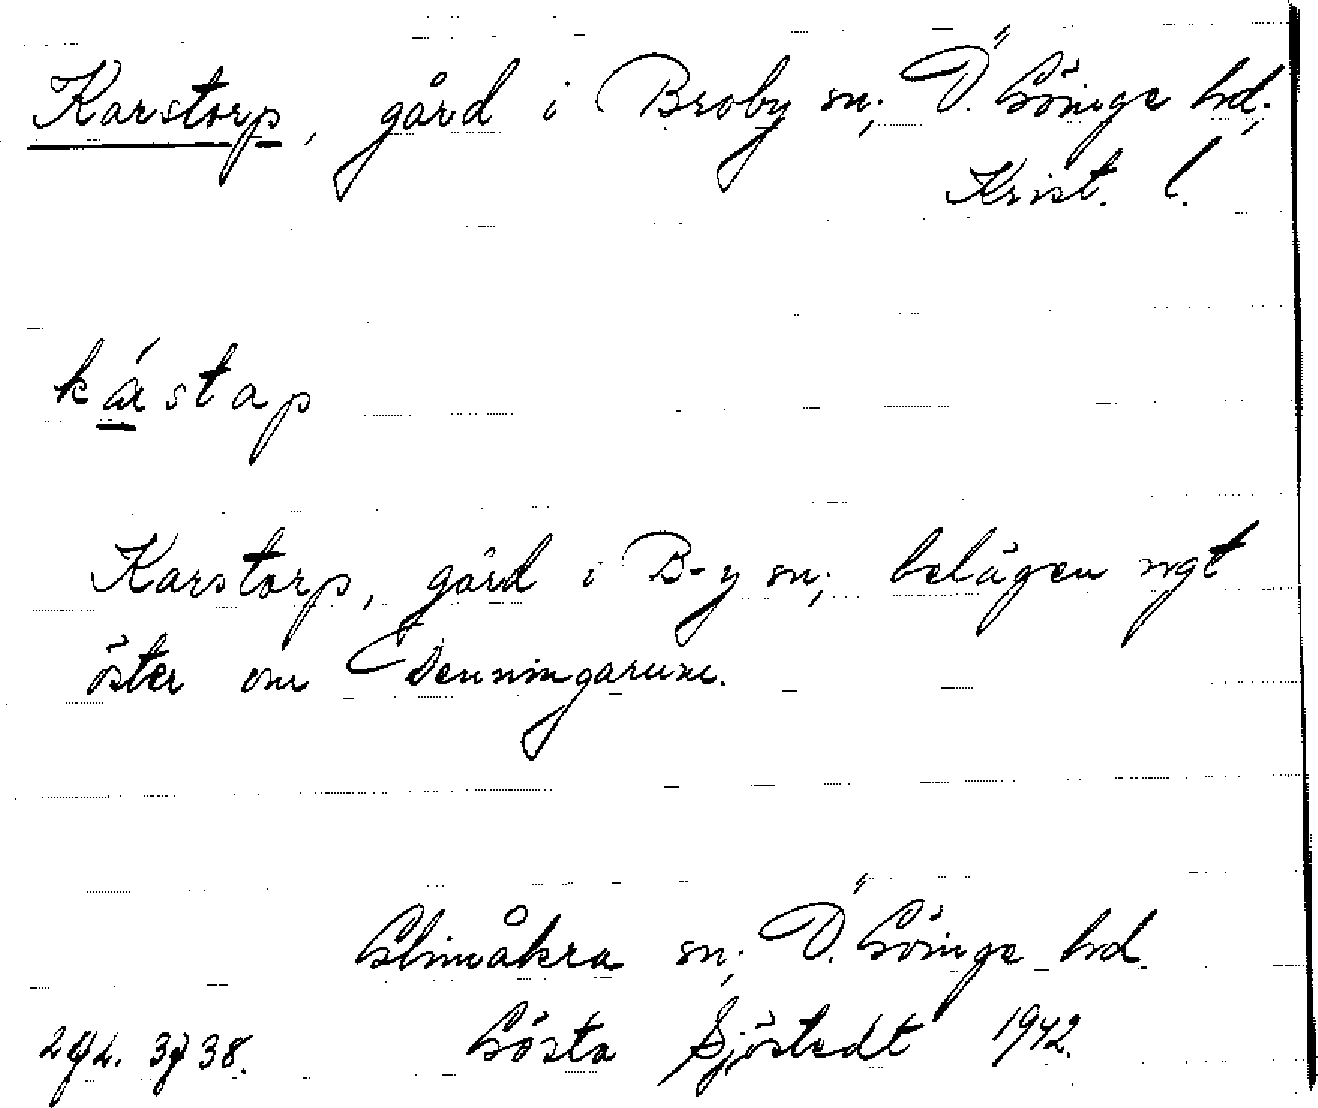 Karstorp, gård i Broby sn; Ö. Göinge hd;
Krist. l.
kástap
Karstorp, gård i B-y sn; belägen ngt
öster om Denningarum.
Glimåkra sn; Ö. Göinge hd.
Gösta Sjöstedt 1942.